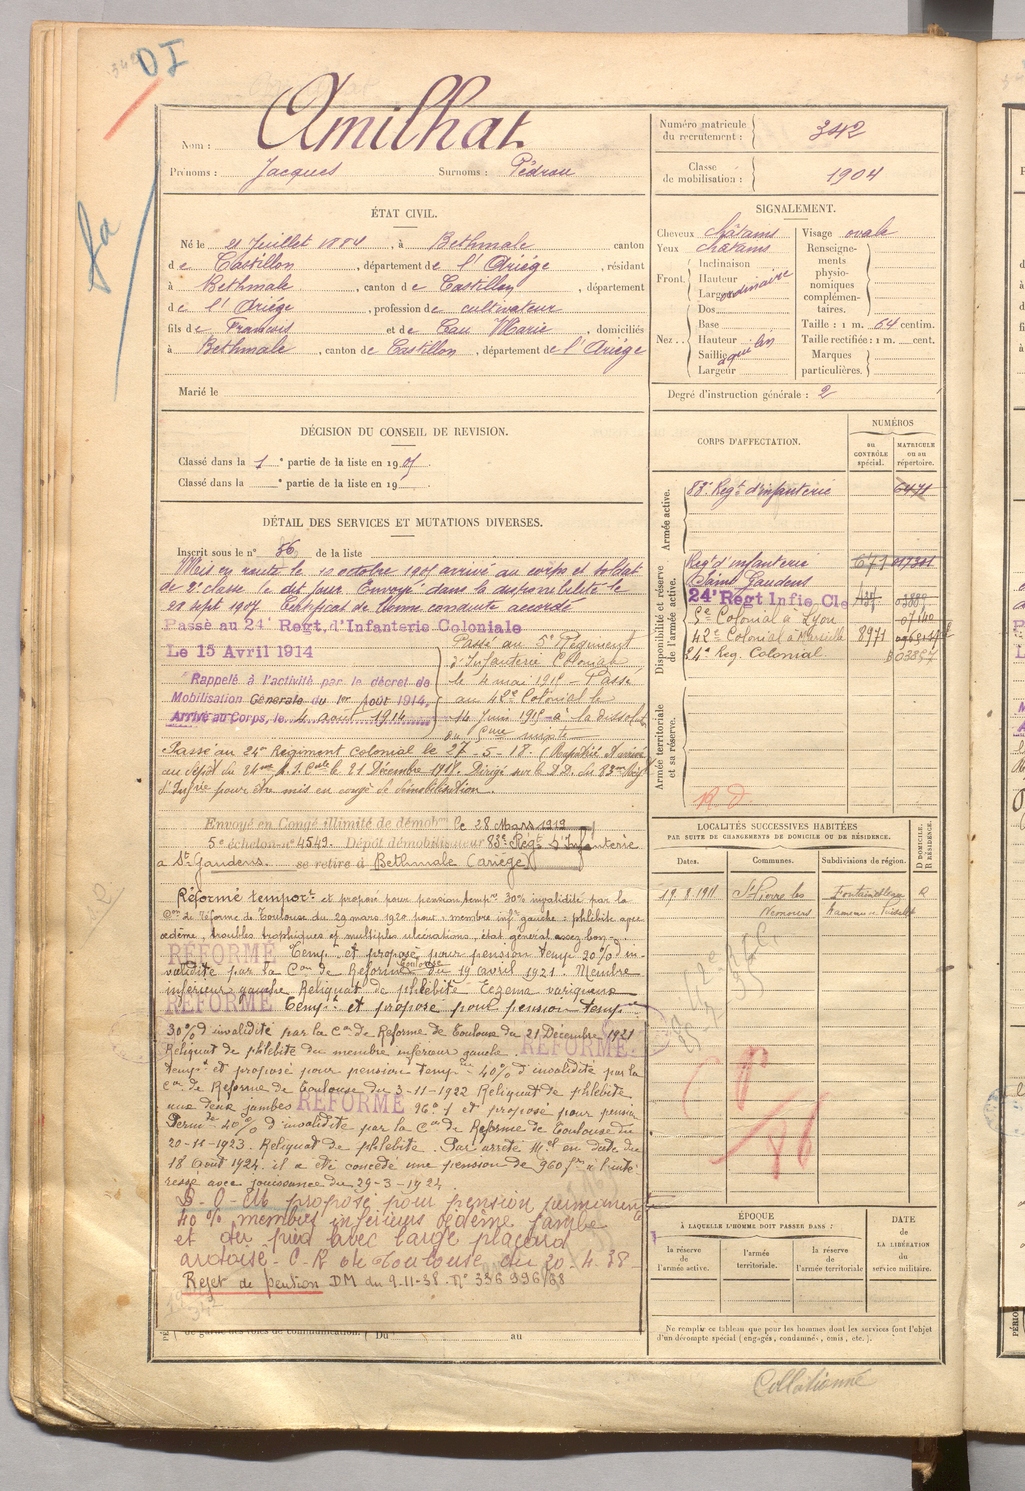 DI
Nom : Amilhat
Prénoms : Jacques Surnoms : Pédrou
Numéro matricule du recrutement : 342
Classe de mobilisation : 1904
ÉTAT CIVIL.
Né le 21 Juillet 1884, à Bethmale canton
de Castillon, département de l'Ariège, résidant
à Bethmale, canton de Castillon, département
de l'Ariège, profession de cultivateur
fils de François et de Cau Marie, domiciliés
à Bethmale, canton de Castillon, département de l'Ariège
Marié le
SIGNALEMENT.
Cheveux châtains
Yeux châtains
Front. Inclinaison
Hauteur
Largeur
ordinaire
Nez.. Dos
Base
Hauteur
Saillie
Largeur
aquilin
Visage ovale
Renseignements physionomiques complémentaires.
Taille : 1 m. 64 centim.
Taille rectifiée : 1 m. cent.
Marques particulières.
Degré d'instruction générale : 2
DÉCISION DU CONSEIL DE REVISION.
Classé dans la 1e partie de la liste en 1905.
Classé dans la e partie de la liste en 19
DÉTAIL DES SERVICES ET MUTATIONS DIVERSES.
Inscrit sous le n° 36 de la liste
Mis en route le 10 octobre 1905 arrivé au corps et soldat
de 2e classe le dit jour. Envoyé dans la disponibilité le
21 sept 1907 Certificat de bonne conduite accordé
Passé au 24e Regt. d'Infanterie Coloniale
Le 15 Avril 1914
Rappelé à l'activité par le décret de
Mobilisation Générale du 1er Août 1914,
Arrivé au Corps, le 4 août 1914
Passé au 5e Régiment
d'Infanterie Colonial
le 4 mai 1915 - Passé
au 42e Colonial le
14 Juin 1915 à la dissol
du 5eme mixte
Passé au 24me Régiment colonial le 27-5-18. (Rapatrié. Arrivé
au dépôt du 24me R.I. Cale le 21 Décembre 1918. Dirigé sur le D.D. du 83me Rég
d'Infrie pour être mis en congé de démobilisation.
Envoyé en Congé illimité de démobon le 28 Mars 1919
5e échelon n° 4549. Dépôt démobilisateur 83e Régt d'Infanterie
à St Gaudens. se retire à Bethmale (Ariège)
Réformé temport et proposé pour pension tempre 30% invalidité par la
Con de réforme de Toulouse du 29 mars 1920 pour : membre infr gauche : phlébite avec
œdème, troubles trophiques et multiples ulcérations, état général assez bon.
RÉFORMÉ Tempt et proposé pour pension temp 20% d'in-
validité par la Con de Réforme Toulouse du 19 avril 1921. Membre
inférieur gauche Reliquat de phlébite - Eczéma variqueux
RÉFORMÉ tempt et proposé pour pension tempre
30% d'invalidité par la Con de Réforme de Toulouse du 21 Décembre 1921
Reliquat de phlébite du membre inférieur gauche. RÉFORMÉ.
tempt et proposé pour pension tempre 40% d'invalidité par la
Con de Réforme de Toulouse du 3-11-1922 Reliquat de phlébite
aux deux jambes RÉFORMÉ et proposé pour pension
Perm 40% d'invalidité par la Con de Réforme de Toulouse du
20-11-1923. Reliquat de phlébite. Par arrêté Mel en date du
18 Août 1924 il a été concédé une pension de 960 frs à l'inté
ressé avec jouissance du 29-3-1922
proposé pour pension permanente
40% membres inférieurs œdème jambe
et du pied avec large placard
ardoisé - C.R de Toulouse du 20-4-38-
Rejet de pention DM du 9-11-38. N° 336 996/38
Du au
CORPS D'AFFECTATION.
NUMÉROS
au CONTRÔLE spécial.
MATRICULE ou au répertoire.
Armée active.
83e Regt d'infanterie 6471
Disponibilité et réserve de l'armée active.
Regt d'infanterie
Saint Gaudens
24e Regt Infie Cle
5e Colonial à Lyon
42e Colonial à Marseille 8971
24e Reg. Colonial
Armée territoriale et sa réserve.
R.D.
LOCALITÉS SUCCESSIVES HABITÉES
PAR SUITE DE CHANGEMENTS DE DOMICILE OU DE RÉSIDENCE.
Dates. Communes. Subdivisions de région. D DOMICILE. R RÉSIDENCE.
19.8.1911 St Pierre les Nemours Fontainebleau R
ÉPOQUE
À LAQUELLE L'HOMME DOIT PASSER DANS :
la réserve de l'armée active.
l'armée territoriale.
la réserve de l'armée territoriale
DATE de LA LIBÉRATION du service militaire.
Ne remplir ce tableau que pour les hommes dont les services font l'objet
d'un décompte spécial (engagés, condamnés, omis, etc.).
Collationné